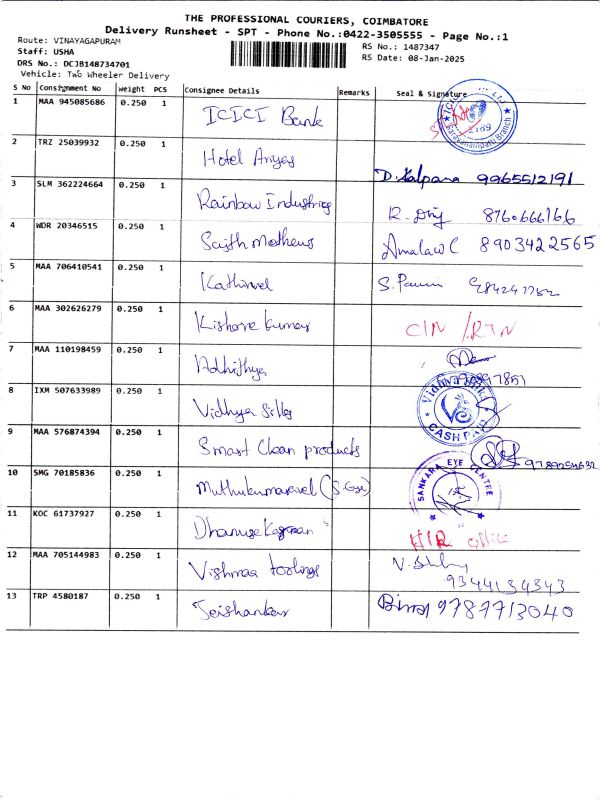 THE PROFESSIONAL COURIERS, COIMBATORE
Delivery Runsheet - SPT - Phone No.:0422-3505555 - Page No.:1
Route: VINAYAGAPURAM
RS No.: 1487347
Staff: USHA
RS Date: 08-Jan-2025
DRS No.: DCJB148734701
Vehicle: Two Wheeler Delivery
S No Consignment No Weight PCS Consignee Details Remarks Seal & Signature
1 MAA 945085686 0.250 1 ICICI Bank
Saravanampatti Branch
2 TRZ 25039932 0.250 1 Hotel
D. Kalpana 9965512191
3 SLM 362224664 0.250 1 Rainbow Industries
R. 8760666766
4 WDR 20346515 0.250 1 Sajith Mathews
8903422565
5 MAA 706410541 0.250 1 Kathirvel
S.
6 MAA 302626279 0.250 1 Kishore Kumar
CIN / RTN
7 MAA 110198459 0.250 1 Adhithya
8 IXM 507633989 0.250 1 Vidhya Silks
CASH PAID
9 MAA 576874394 0.250 1 Smart Clean products
10 SMG 70185836 0.250 1 Muthukumaravel
SANKARA EYE CENTRE
11 KOC 61737927 0.250 1
office
12 MAA 705144983 0.250 1 Vishmaa toolings
9344134343
13 TRP 4580187 0.250 1 Jeishankar
9787713040